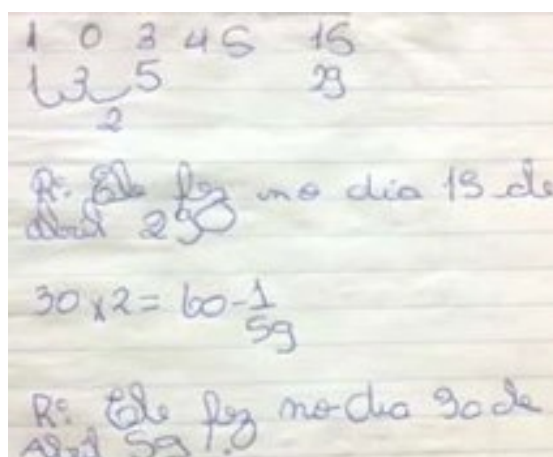 1 0 3 4 5 15
1 3 5 29
2
R: Ele fez no dia 15 de
Abril 290
30 x 2 = 60 - 1
59
R: Ele fez no dia 30 de
Abril 59